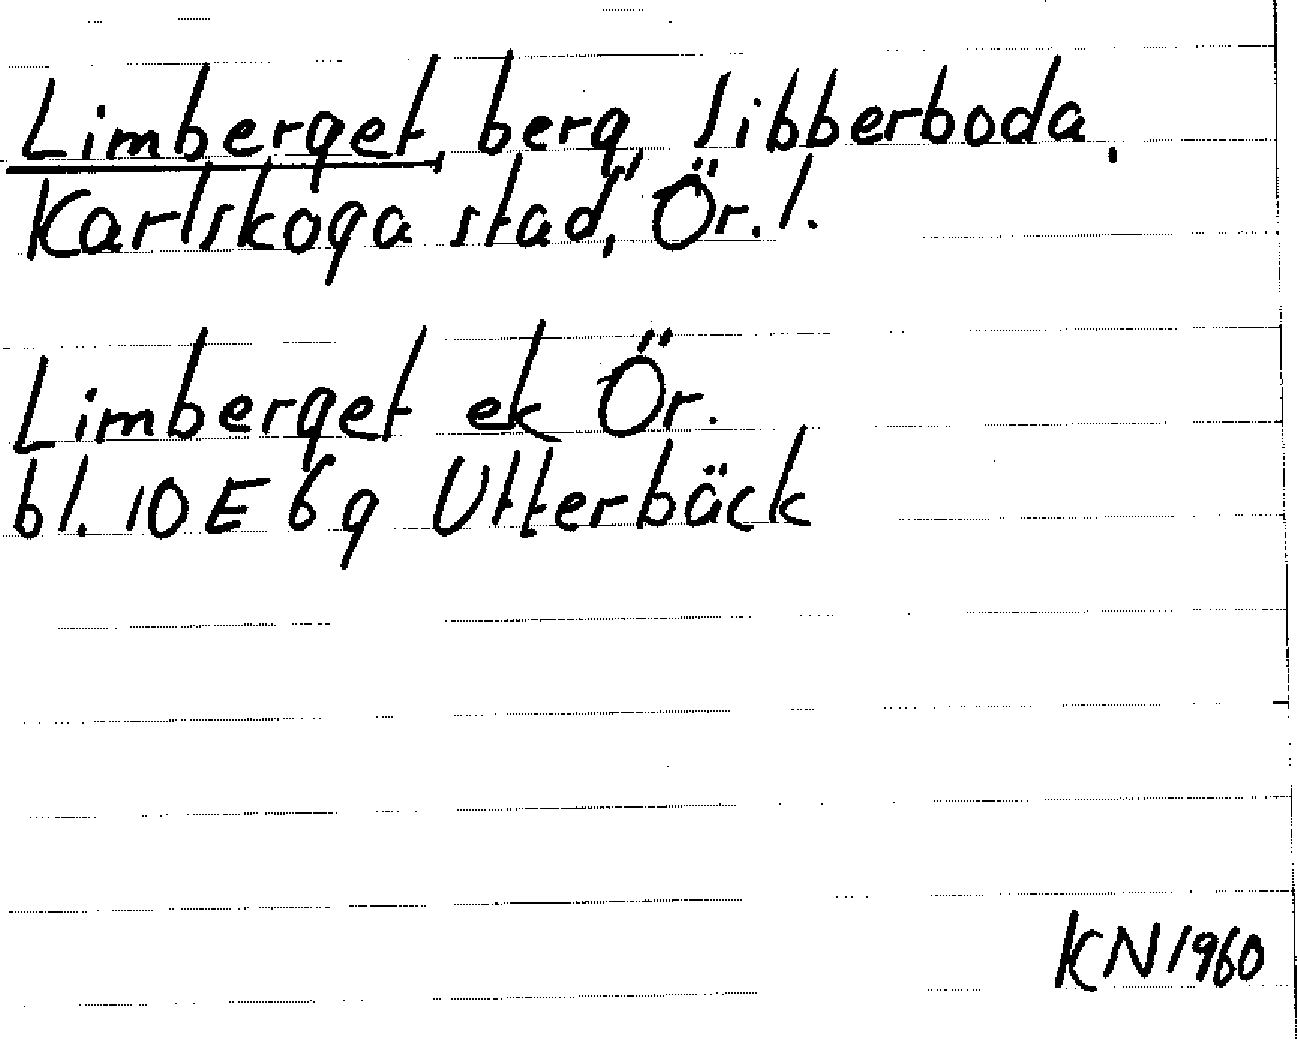 Limberget, berg, Sibberboda,
Karlskoga stad, Ör. l.
Limberget ek Ör.
bl. 10 E 6 g Utterbäck
KN 1960